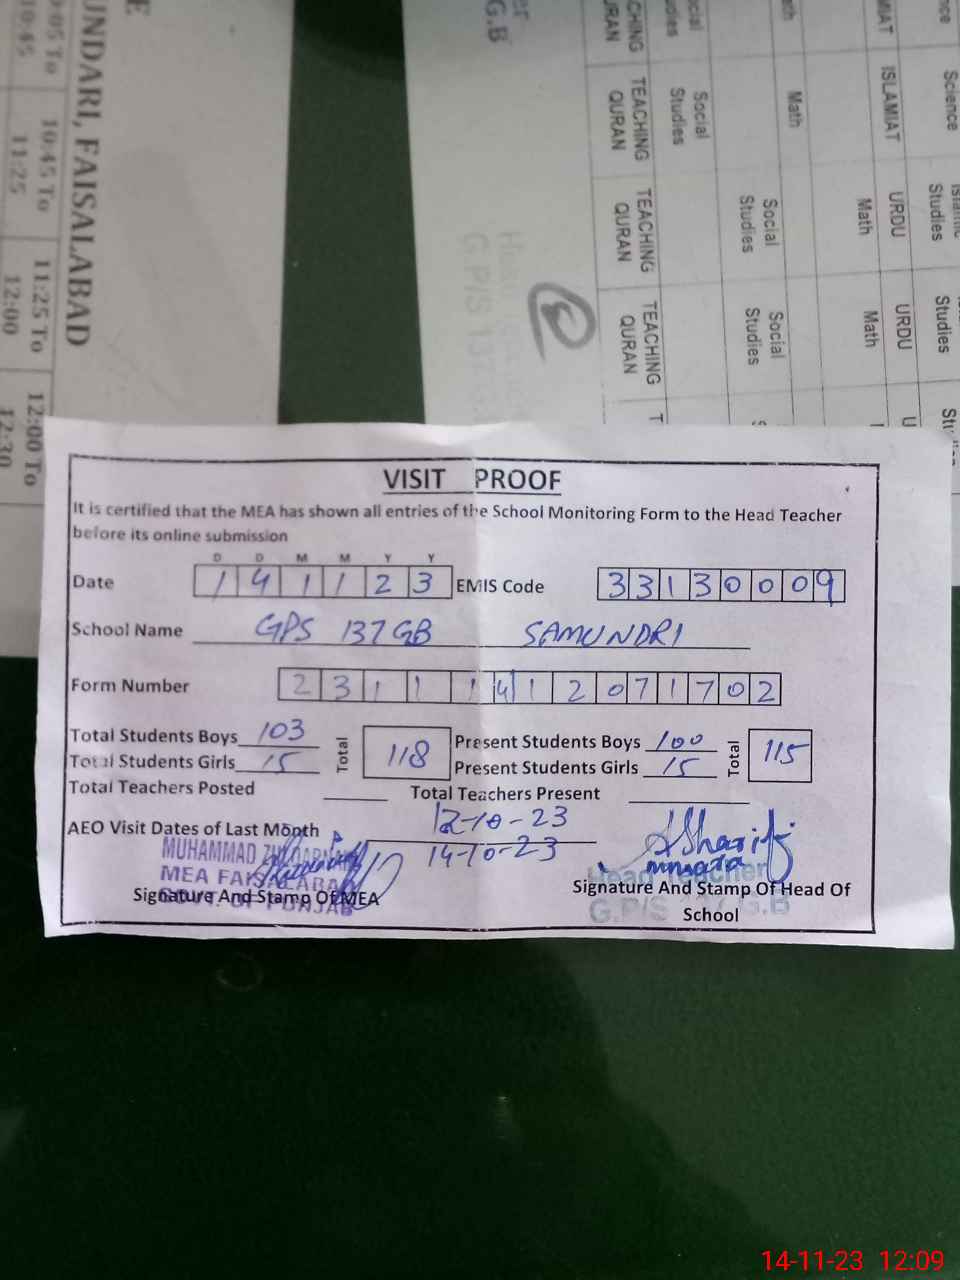 E
UNDARI, FAISALABAD
10:45
10:45 To
11:25
11:25 To
12:00
12:00 To
12:30
G.B
TEACHING
QURAN
TEACHING
QURAN
TEACHING
QURAN
Social
Studies
Social
Studies
Social
Studies
Math
ISLAMIAT
URDU
Math
URDU
Math
Science
Studies
Studies
VISIT PROOF
It is certified that the MEA has shown all entries of the School Monitoring Form to the Head Teacher
before its online submission
D D M M Y Y
Date 1 4 1 1 2 3 EMIS Code 3 3 1 3 0 0 0 9
School Name GPS 137 GB SAMUNDRI
Form Number 2 3 1 1 1 4 1 2 0 7 1 7 0 2
Total Students Boys 103 Total 118 Present Students Boys 100 Total 115
Total Students Girls 15 Present Students Girls 15
Total Teachers Posted Total Teachers Present
AEO Visit Dates of Last Month 12-10-23
14-10-23
MUHAMMAD
MEA FAISALABAD
GOVT. OF PUNJAB
Signature And Stamp Of MEA
Head Teacher
G.P/S G.B
Signature And Stamp Of Head Of
School
14-11-23 12:09